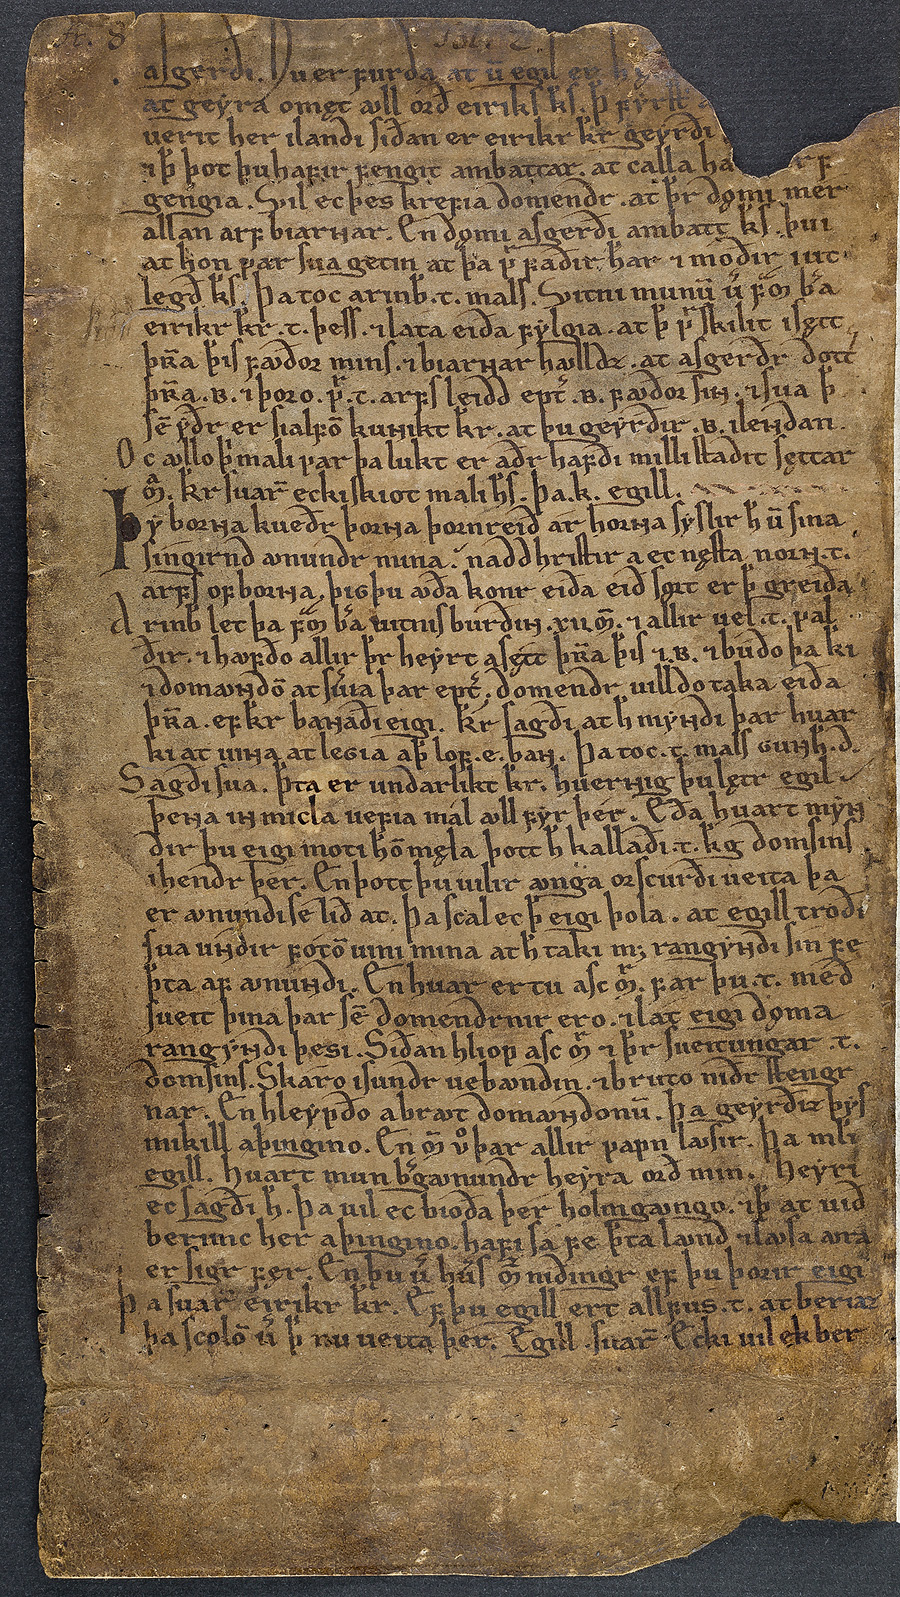 asgerði. Nu er furða at u egil er
at geyra omęt ꜵll orð eiriks ks. þ fyrst
uerit her ilandi siðan er eirikr kr geyrði
ı þ þot þu hafir fengit ambattar. at calla ha
gengia. Vil ec þes krefia domendr. at þr dømi mer
allan arf biarnar. En dømi asgerði ambatt ks. þui
at hon uar sua getin at þa u faðir har ı moðir ı ut
legð ks. Þa toc arinb. t. mals. Vitni munū u fō ba
eirikr kr. t. þess. ı lata eiða fylgia. at þ u skilit ı sętt
þra þis fꜵðor mins. ı biarnar hꜵlldz. at asgerðr dott
þra. B. ı þoro. u. t. arfs leidd ept. B. fꜵðor sin. ı sua þ
sē yðr er sialfō kunikt kr. at þu geyrðir. B. ilendan.
Oc ꜵllo þ mali uar þa lukt er aðr hafði milli staðit sęttar
m̄. Kr suar ecki skiot mali hs. Þa. k. egill.
Þy borna kueðr þorna þornreið ar horna syslir h ū sina
singirnd ꜵnundr mina. naddhristir a ec nęsta norn. t.
arfs of borna. þig þu ꜵða konr eiða eið sørt er þ greiða
Arinb let þa fō ba uitnis burðin. xıı m̄. ı allir uel. t. ual
ðir. ı hꜵfðo allir þr heyrt a sętt þra þis ı. B. ı buðo þa ki
ı domꜵndō at suia þar ept. domendr uilldo taka eiða
þra. ef kr banaði eigi. Kr sagði at h myndi þar huar
ki at uina at legia a þ lof. e. ban. Þa toc. t. mals gunh. d.
Sagði sua. Þta er undarlikt kr. huernig þu lętr egil
þena in micla uefia mal ꜵll fyr þer. Eða huart myn
dir þu eigi moti hō męla þott h kallaði. t. kg domsins
ı hendr þer. En þott þu uilir ꜵnga orscurði ueita þa
er ꜵnundi se lið at. Þa scal ec þ eigi þola. at egill troði
sua undir fotō uini mina at h taki mꝫ rangyndi sin fe
þta af ꜵnundi. En huar ertu asc m̄. far þu. t. með
sueit þina þar sē domendrnir ero. ı lat eigi døma
rangyndi þesi. Siðan hliop asc m̄ ı þr sueitungar. t.
domsins. Skaro ı sundr uebꜵndin. ı bruto niðr stengr
nar. En hleypðo a brꜵt domꜵndonū. Þa geyrðiz þys
mikill a þingino. En m̄ u þar allir uapn lꜵsir. Þa mli
egill. Huart mun bgꜵnundr heyra orð min. Heyri
ec sagði h. Þa uil ec bioða þer holmgꜵngo. ı þ at uið
berimc her a þingino. hafi sa fe þta lꜵnd ı lꜵsa ꜵra
er sigr fer. En þu u hus m̄ niðingr ef þu þorir eigi
Þa suar eirikr kr. Ef þu egill ert allfus. t. at beriaz
þa scolō u þ nu ueita þer. Egill suar Ecki uil ek ber